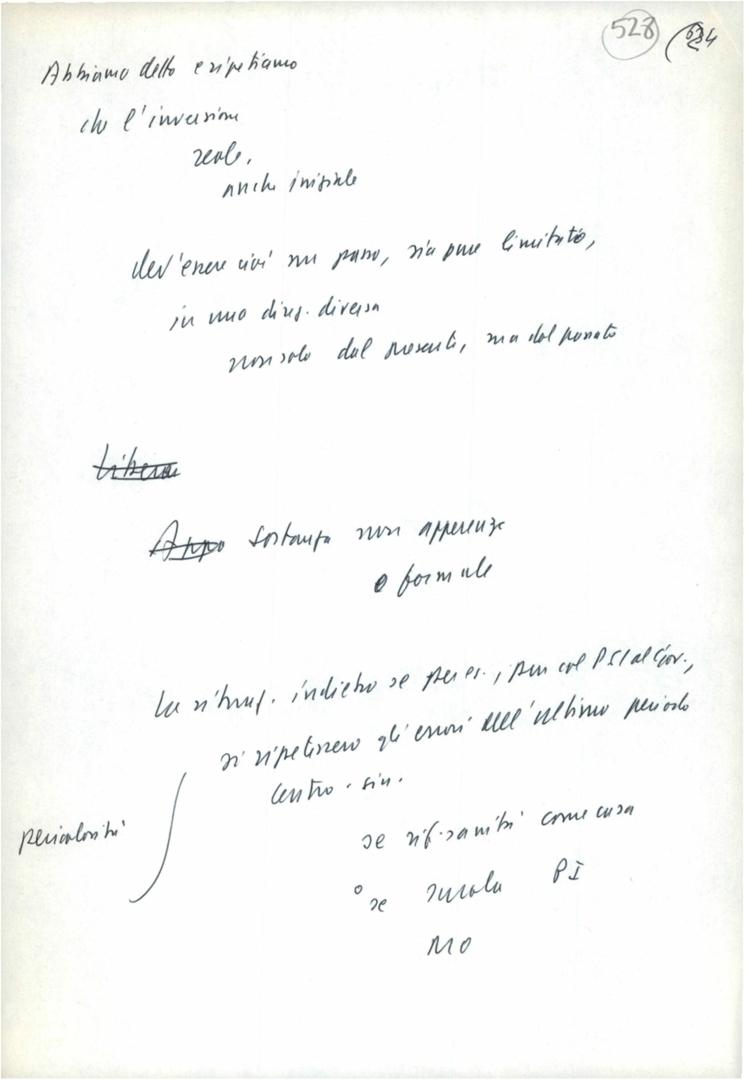 528
Abbiamo detto e ripetiamo
che l'inversione
reale,
anche iniziale
dev'essere cioè un passo, sia pure limitato,
in una direz. diversa
non solo dal presente, ma dal passato
Libera
Appo sostanza non apparenze
o formale
La situaz. indietro se per es., pur col PSI al Gov.,
si ripetessero gli errori dell'ultimo periodo
centro-sin.
pericolosità
se rif. sanità come casa
o se scuola PI
MO